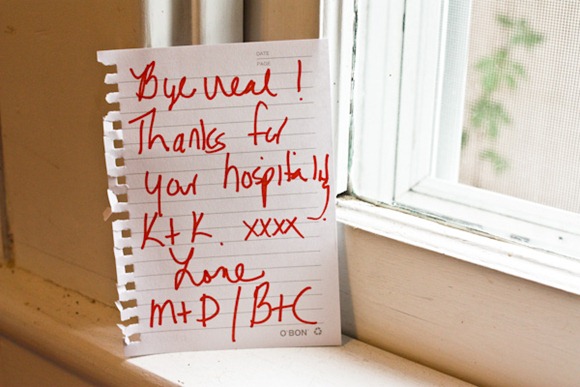 DATE
PAGE
Bye neal !
Thanks for
your hospitality
K+K. xxxx
Love
M+D / B+C
O'BON